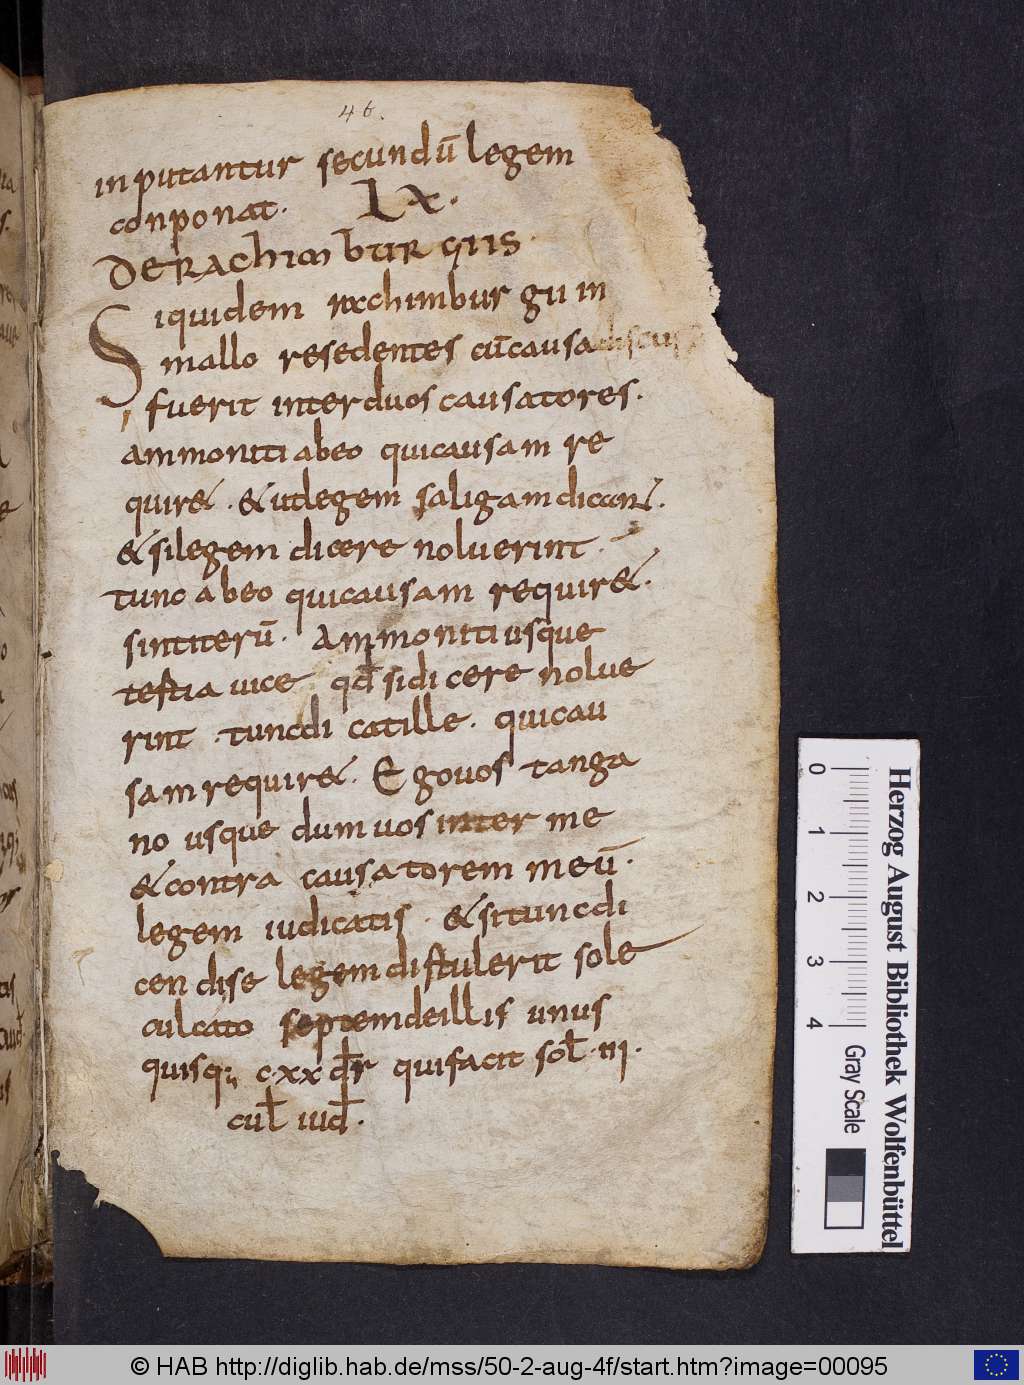 46.
inputantur secundū legem
conponat. LX.
DERACHIMBURGIIS
Siquidem rachimburgii in
mallo resedentes cū causa discussa
fuerit inter duos causatores.
ammoniti abeo qui causam re
quir&. & ut legem saligam dicant.
& si legem dicere noluerint.
tunc abeo qui causam requir&.
sint iterū. Ammoniti usque
tertia vice qđ si dicere nolue
rint. tunc dicat ille. qui cau
sam requir&. Ego uos tanga
no usque dum uos inter me
& contra causatorem meū.
legem iudicatis. & si tunc di
cendi se legem distulerit sole
culcato septem de illis unus
quisq; cxx dꝉr qui facit soꝉ. iii.
cuꝉ iuđ.
Herzog August Bibliothek Wolfenbüttel
0 1 2 3 4 Gray Scale
© HAB http://diglib.hab.de/mss/50-2-aug-4f/start.htm?image=00095